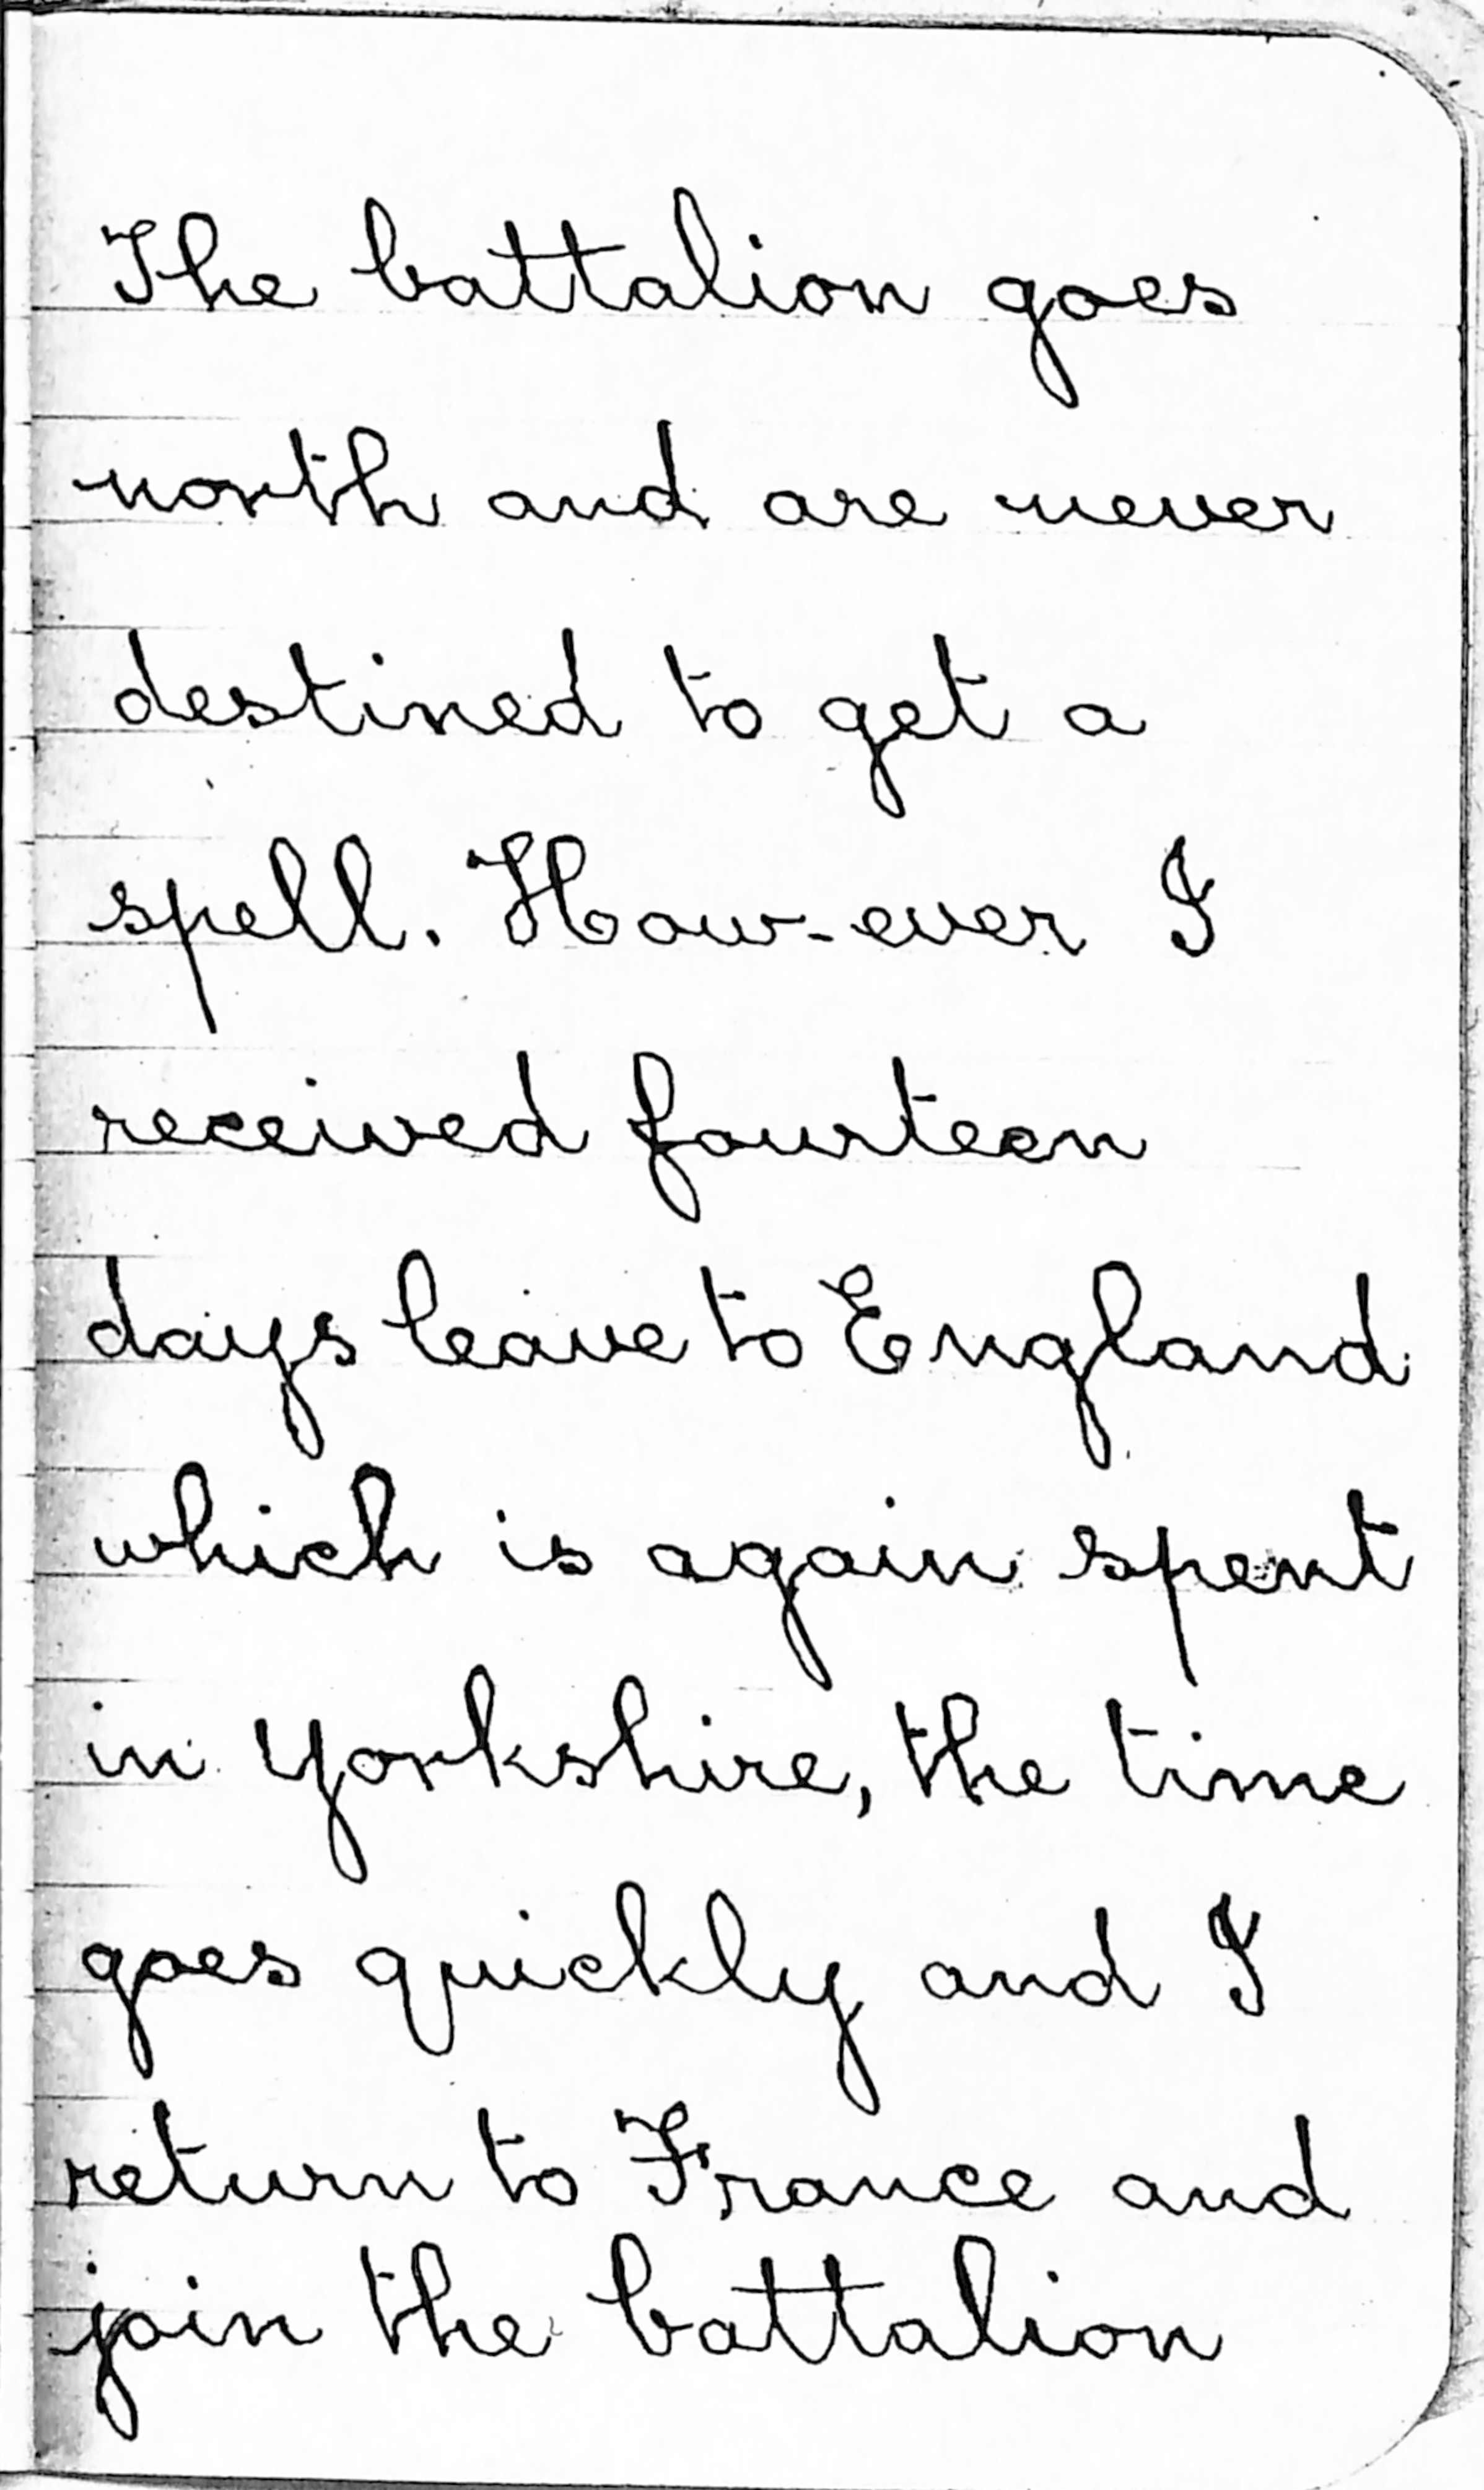 The battalion goes
north and are never
destined to get a
spell. How-ever I
received fourteen
days leave to England
which is again spent
in Yorkshire, the time
goes quickly and I
return to France and
join the battalion